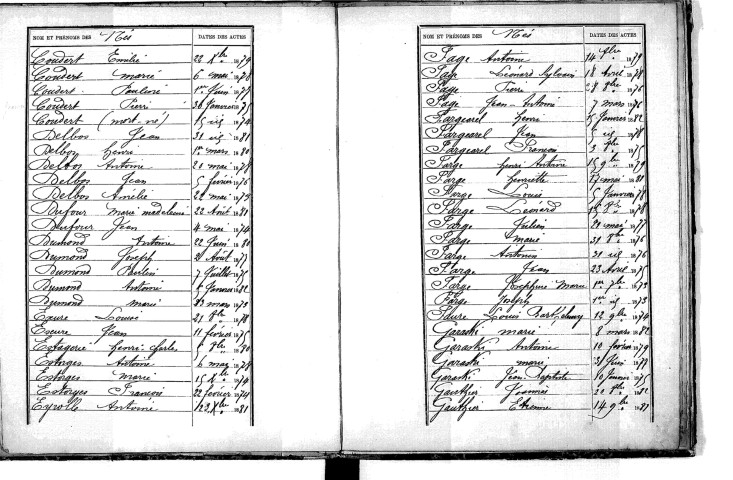 NOM ET PRÉNOMS DES Nés DATES DES ACTES
Coudert Emilie 22 Xbre 1879
Coudert Marie 6 mai 1878
Coudert Pauline 1er Juin 187
Coudert Pierre 30 Janvier 187
Coudert (mort-né) 15 id 1874
Delbos Jean 31 id 1881
Delbos Henri 1er mars 1880
Delbos Antoine 21 mai 187
Delbos Jean 5 février 1876
Delbos Amélie 22 mai 187
Dufour Marie madeleine 22 Août 1881
Dufour Jean 4 mai 1874
Dumond Antoine 22 Juin 1880
Dumond Joseph 2 Août 1877
Dumond Paulin 7 Juillet 1875
Dumond Antoine Janvier 1881
Dumond Marie 23 mars 1873
Louise 21 1878
Escure Jean 11 février 187
Estagerie Henri Charles 1880
Estorges Antoine 6 mai 187
Estorges Marie 15 187
Estorges François 22 février 1874
Eyrolle Antoine 23 Xbre 1881
NOM ET PRÉNOMS DES Nés DATES DES ACTES
Fage Antoine 14 9bre 1879
Fage Léonard Sylvain 18 Avril 1878
Fage Pierre 28 8bre 1876
Fage Jean-Antoine 7 mars 1876
Fargearel Henri 15 Janvier 1882
Fargearel Jean id 1878
Fargearel François 3 187
Farge Henri Antoine 15 9bre 1879
Farge Henriette 17 mai 1881
Farge Louis 5 Janvier 1878
Farge Léonard 1878
Farge Julien 21 mai 1877
Farge Marie 31 8bre 1876
Farge Antonin 31 id 1876
Farge Jean 23 Avril 1875
Farge Joséphine Marie 1er 7bre 1873
Farge Joseph 1er id 1873
Faure Louis Barthélemy 12 9bre 1874
Garaski Marie 8 mars 1882
Garaski Antoine 10 février 1879
Garaski Marie 31 Juin 1877
Garaski Jean Baptiste 10 Janvier 187
Gauthier 20 8bre 1882
Gauthier Etienne 14 9bre 1881